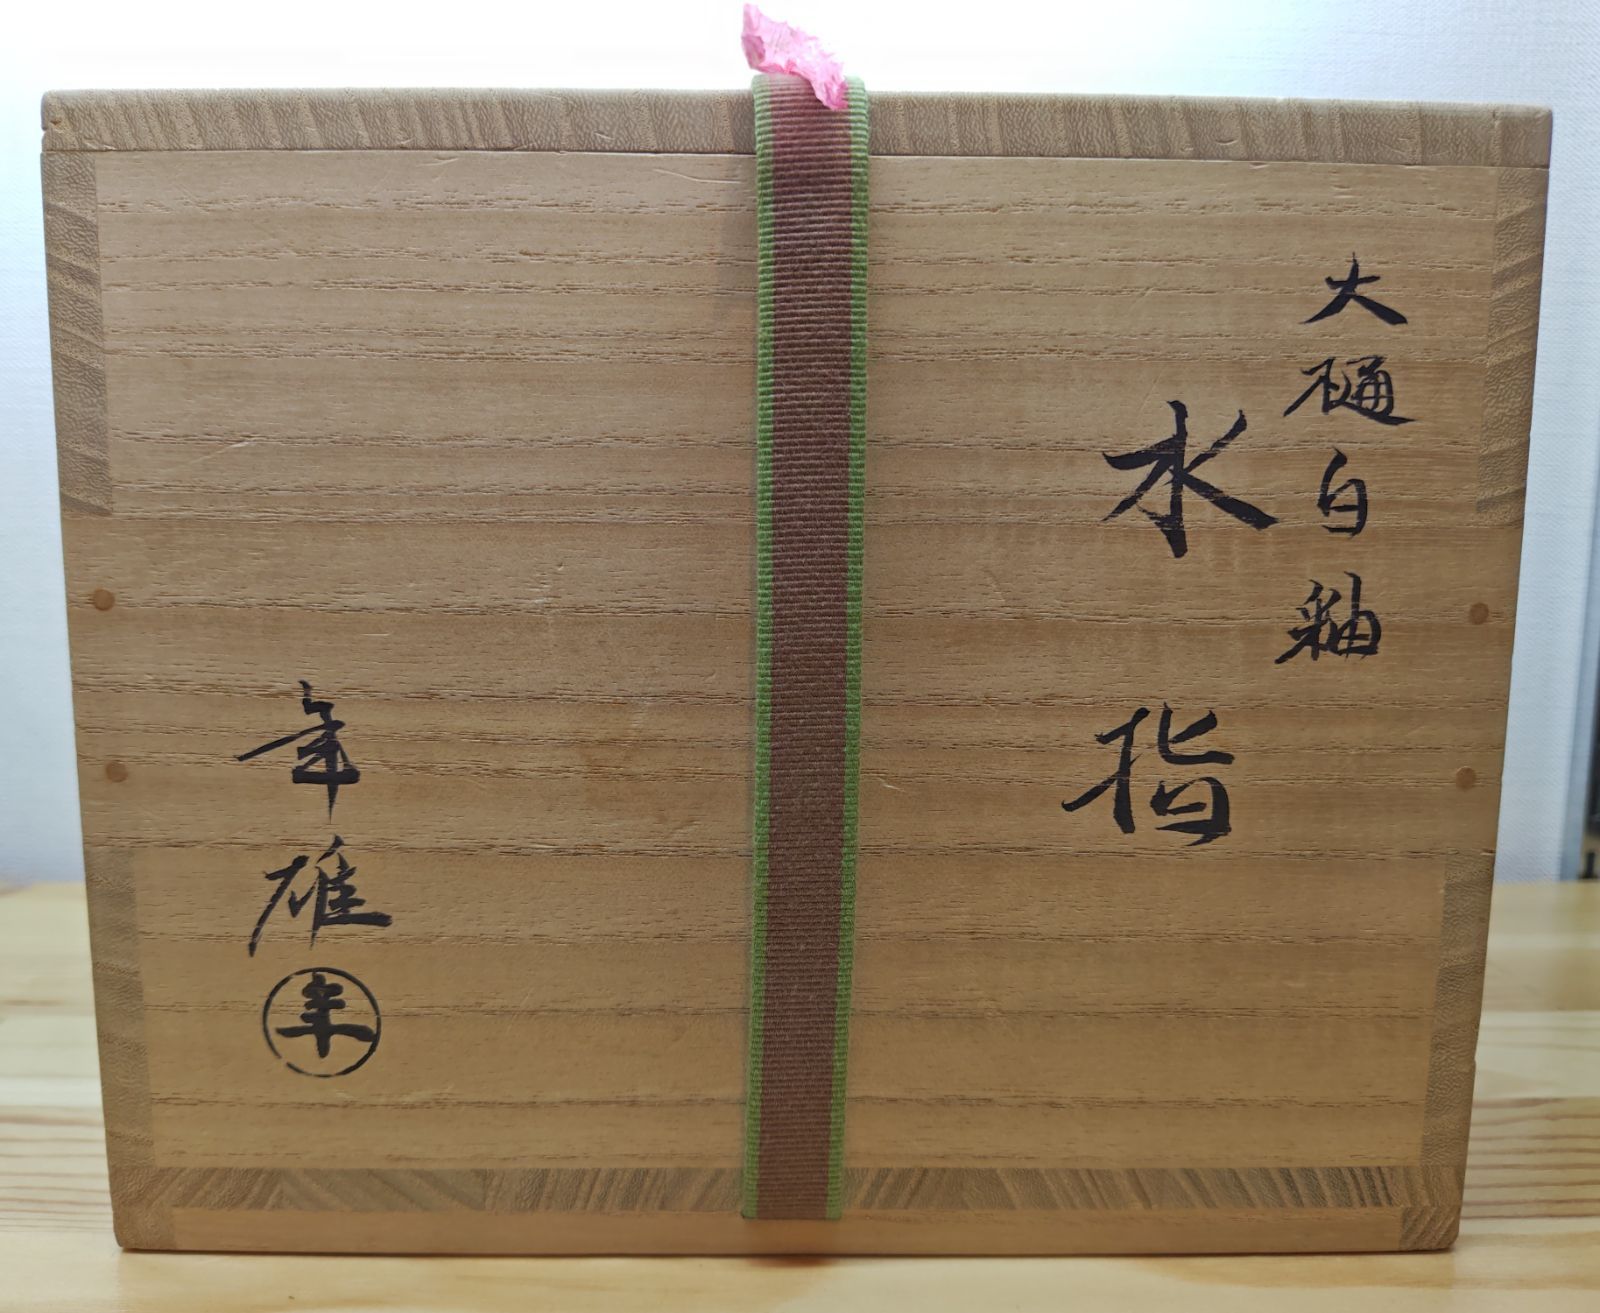 大樋白釉
水指
年雄
年